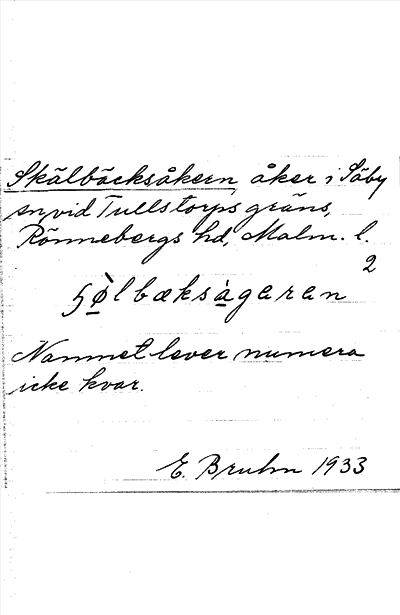 Skälbäcksåkern, åker i Säby
sn, vid Tullstorps gräns,
Rönnebergs hd, Malm. l.
2
ʃø̀lbæksàgaran
Namnet lever numera
icke kvar.
E. Bruhn 1933